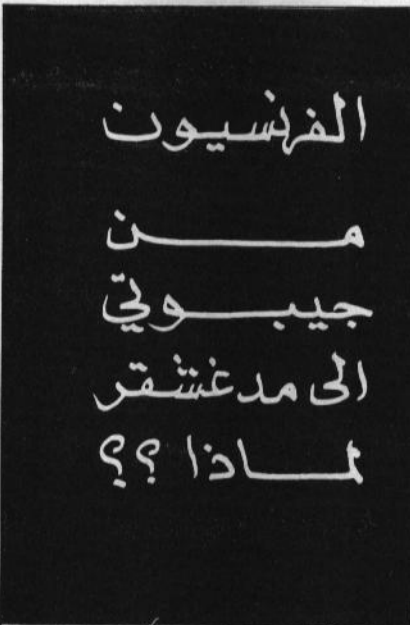 الفرنسيون
من
جيبوتي
الى مدغشقر
لماذا ؟؟